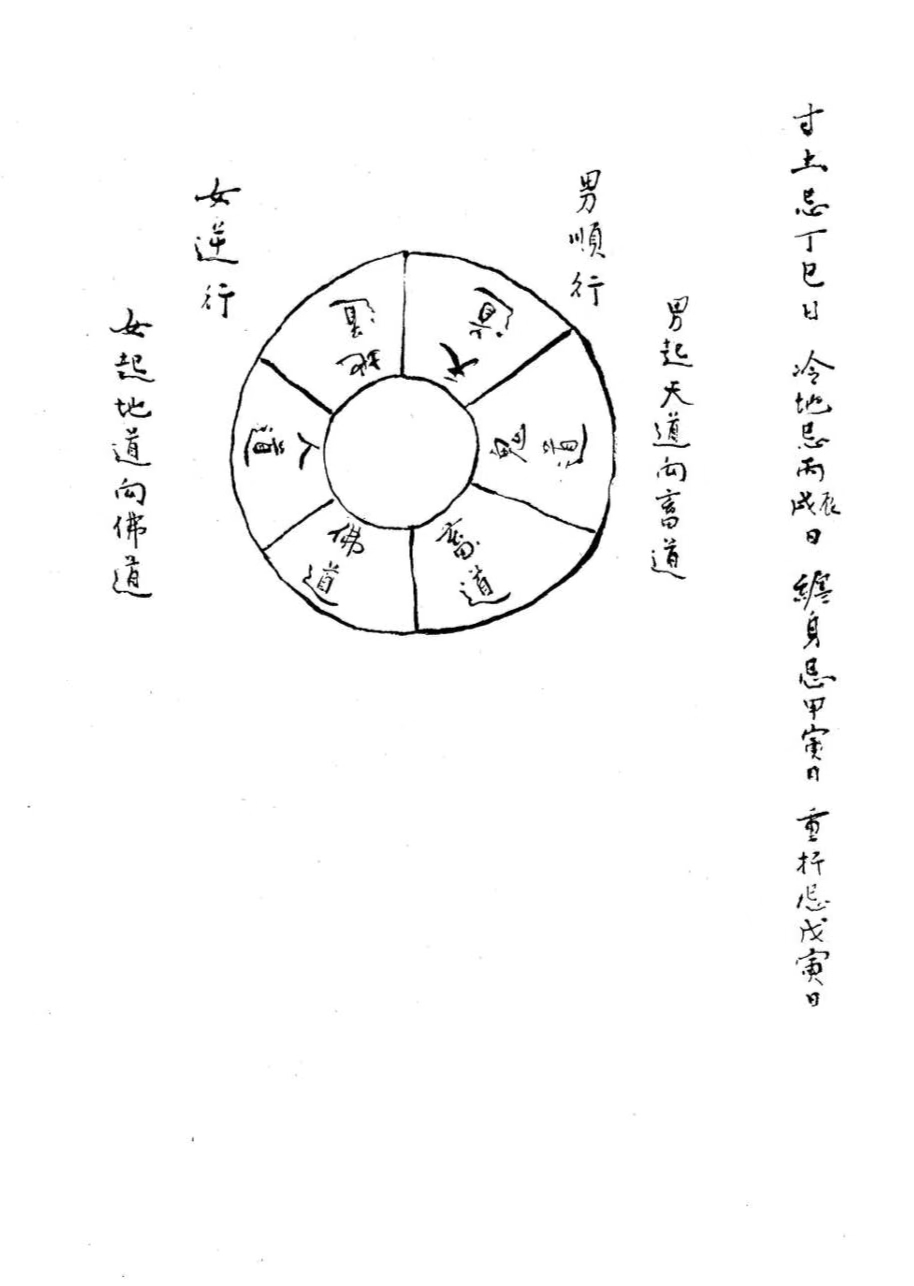 寸土忌丁巳日 冷地忌丙戌辰日 纏身忌甲寅日 重折忌戊寅日
男順行
男起天道向畜道
天道
鬼道
畜道
佛道
人道
地道
女逆行
女起地道向佛道